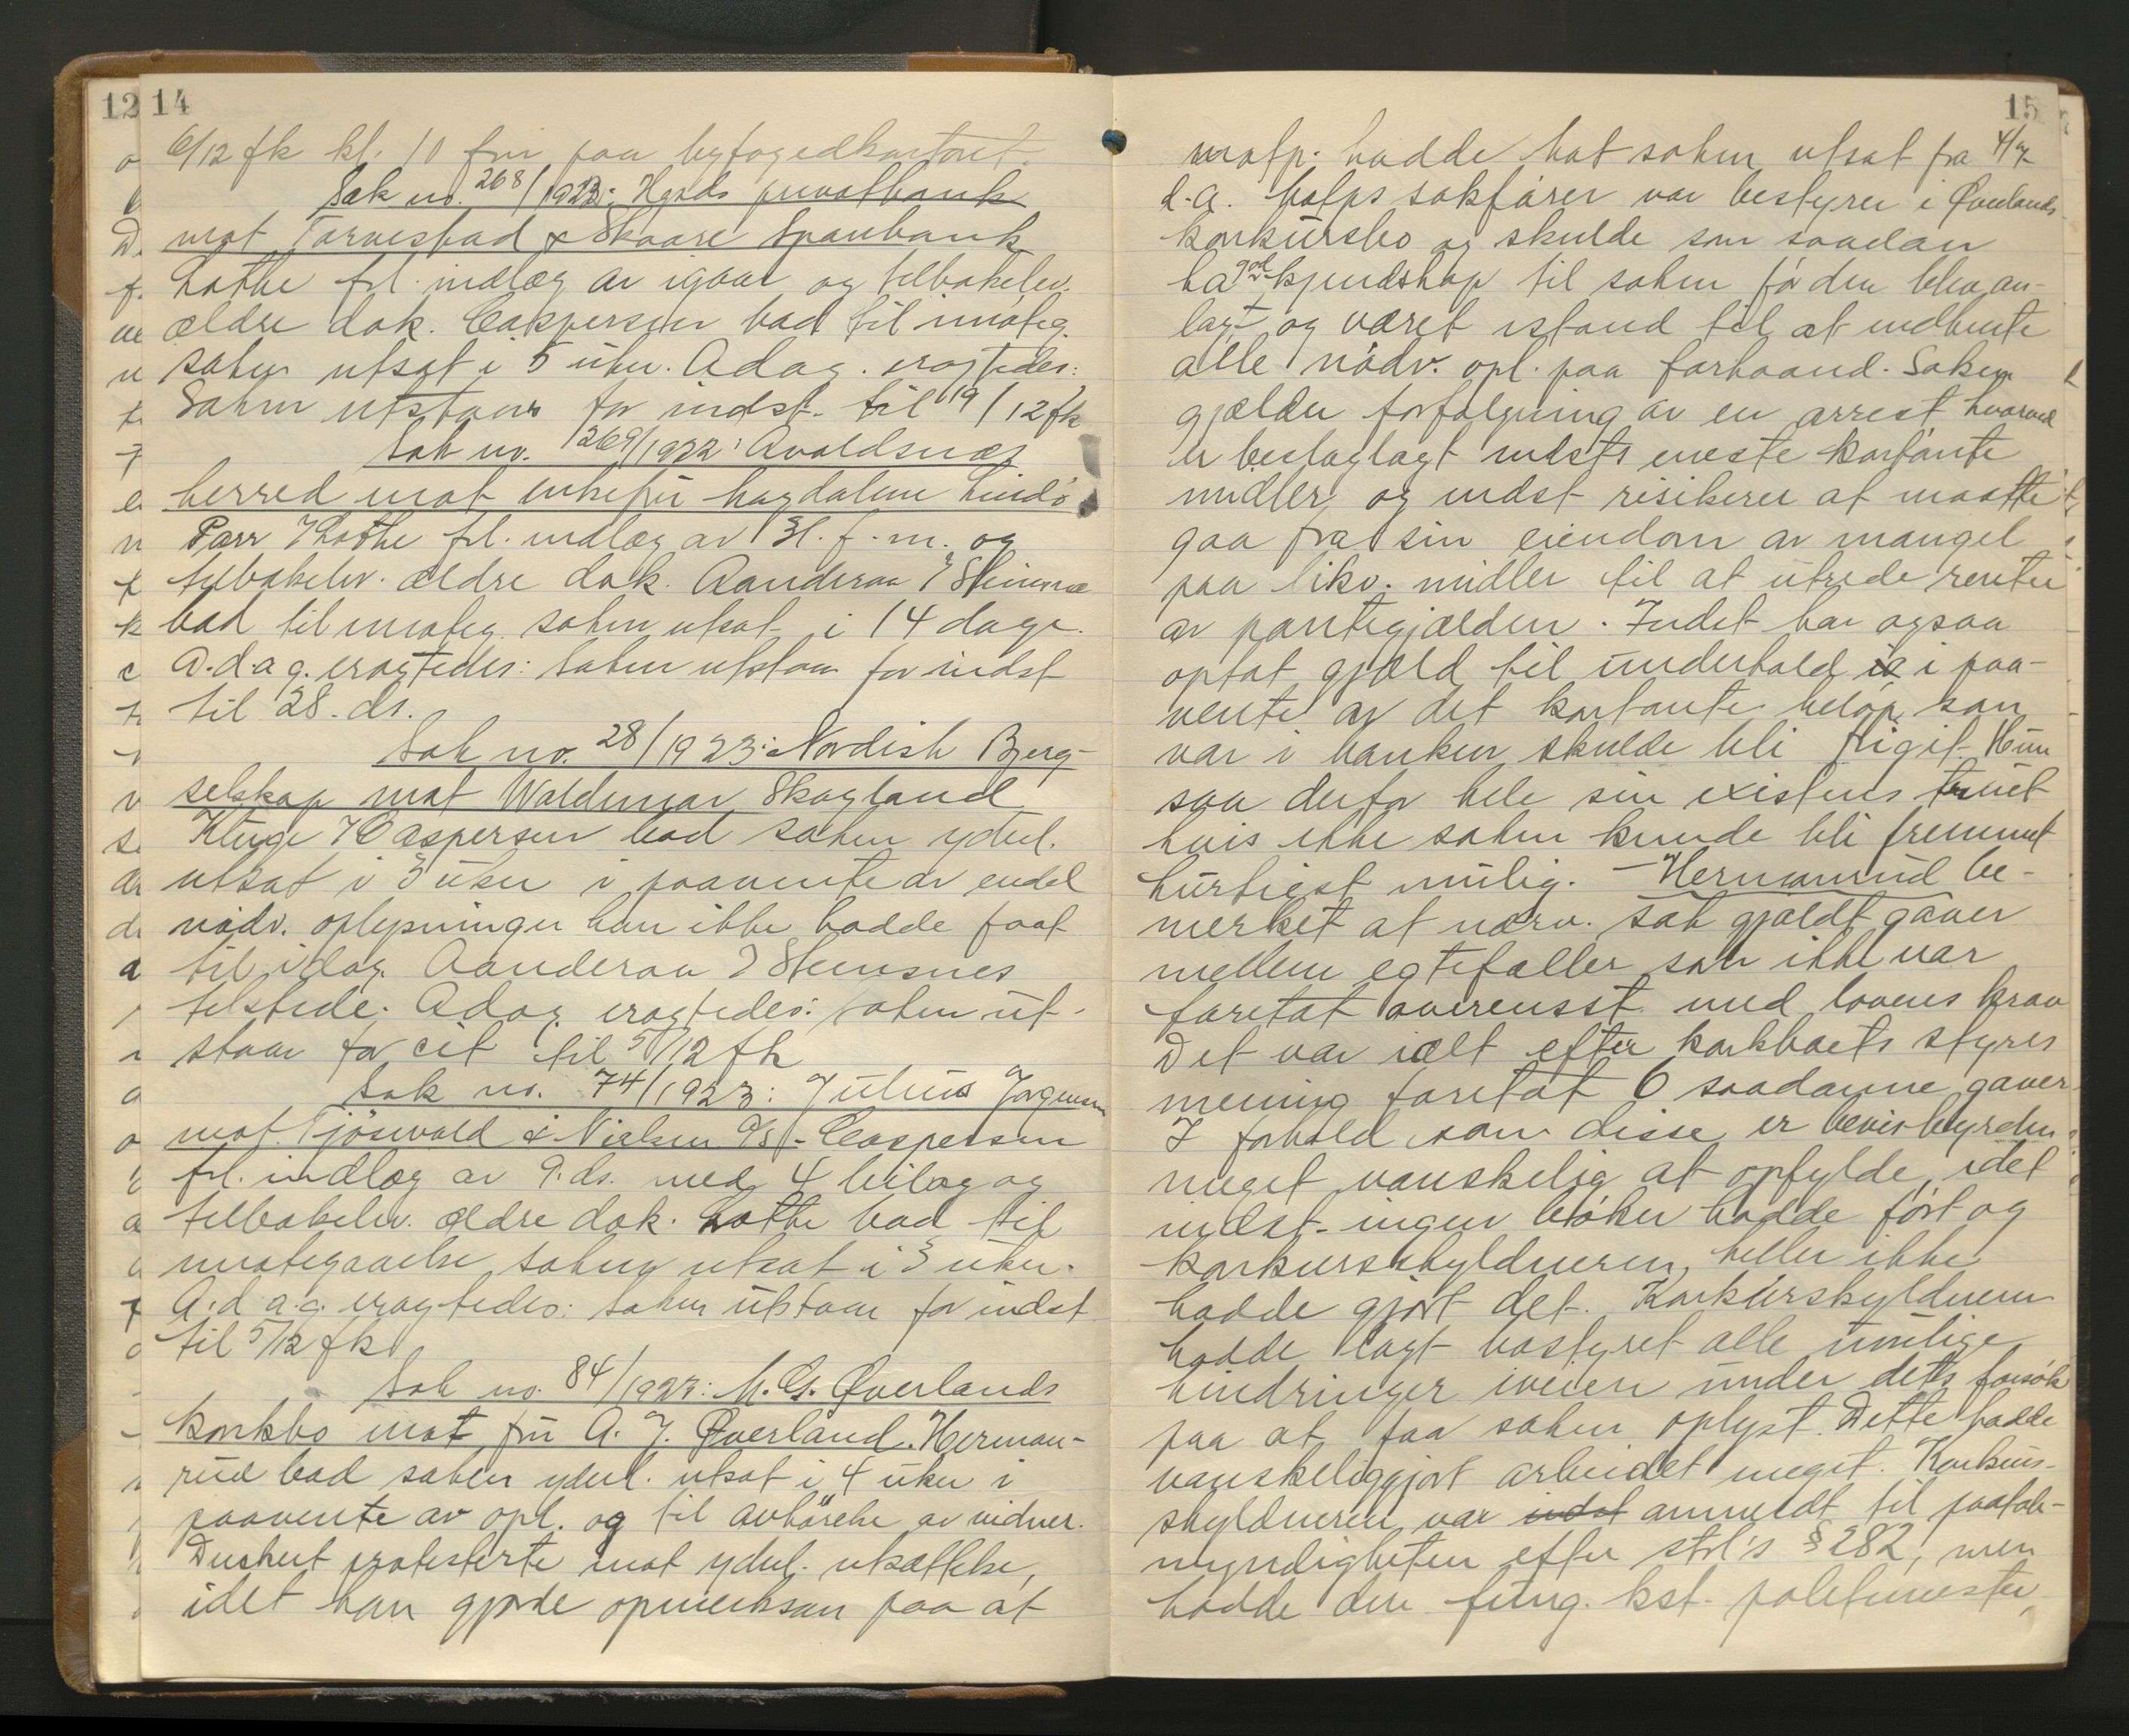 12 14
6/12 fk kl. 10 fm paa byfogedkontoret.
Sak no. 268/1923: Hgsds privatbank
mot Torvestad & Skaare Sparebank
Lothe frl. indlæg av igaar og tilbakelev.
ældre dok. Caspersen bad til imøteg.
saken utsat i 5 uker. A.d.a.g. eragtedes:
Saken utstaar for indst. til 19/12 fk
Sak no. 269/1922: Avaldsnes
herred mot enkefru Magdalene Lindø
Parr ? Lothe frl. indlæg av 31. f. m. og
tilbakelev. ældre dok. Aanderaa ? Steinsnes
bad til imøteg. saken utsat i 14 dage.
A.d.a.g. eragtedes: Saken utstaar for indst
til 28. ds.
Sak no. 28/1923: Nordisk Bjerg-
selskap mot Waldemar Skogland
Kluge ? Caspersen bad saken yderl.
utsat i 3 uker i paavente av endel
nødv. oplysninger han ikke hadde faat
til idag. Aanderaa ? Steinsnes
tilstede. A.d.a.g. eragtedes: Saken ut-
staar for cit til 5/12 fk
Sak no. 74/1923: Julius Jørgensen
mot Tjøsvold & Nielsen A/S - Caspersen
frl. indlæg av 9. ds. med 4 bilag og
tilbakelev. ældre dok. Lothe bad til
imøtegaaelse saken utsat i 3 uker.
A.d.a.g. eragtedes: Saken utstaar for indst
til 5/12 fk
Sak no. 84/1923: M. G. Øverlands
konkbo mot fru A. J. Øverland. Herman-
rud bad saken yderl. utsat i 4 uker i
paavente av opl. og til avhörelse av vidner.
Duskert protesterte mot yderl. utsættelse,
idet han gjorde opmerksom paa at
15
motp. hadde hat saken utsat fra 4/
d.a. Motps sakfører var bestyrer i Øverlands
konkursbo og skulde som saadan
ha god kjendskap til saken før den blev an-
lagt og været istand til at indhente
alle nødv. opl. paa forhaand. Saken
gjælder forfølgning av en arrest hvorved
er beslaglagt indsts eneste kontante
midler og indst risikerer at maatte
gaa fra sin eiendom av mangel
paa likv. midler til at utrede renter
av pantegjælden. Indst har ogsaa
optat gjæld til underhold i paa-
vente av det kontante beløp som
var i banken skulde bli frigit. Hun
saa derfor hele sin existens truet
hvis ikke saken kunde bli fremmet
hurtigst mulig. - Hermanrud be-
merket at nærv. sak gjaldt gaver
mellem egtefæller som ikke var
foretat overensst. med lovens krav
Det var ialt efter konkboets styres
mening foretat 6 saadanne gaver.
I forhold som disse er bevisbyrden
meget vanskelig at opfylde, idet
indst. ingen bøker hadde ført og
konkursskyldneren heller ikke
hadde gjort det. Konkursskyldneren
hadde lagt bostyret alle mulige
hindringer iveien under dets forsøk
paa at faa saken oplyst. Dette hadde
vanskeliggjort arbeidet meget. Konkurs-
skyldneren var indst anmeldt til paatale-
myndigheten efter strl's § 282, men
hadde den fung. kst. politimester